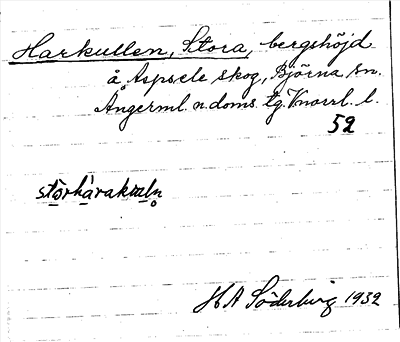 Harkullen, Stora, bergshöjd
å Aspsele skog, Björna sn.
Ångerml. n. doms. tg. Vnorrl. l.
52
stòrhàrakuln̥
H A Söderberg 1932